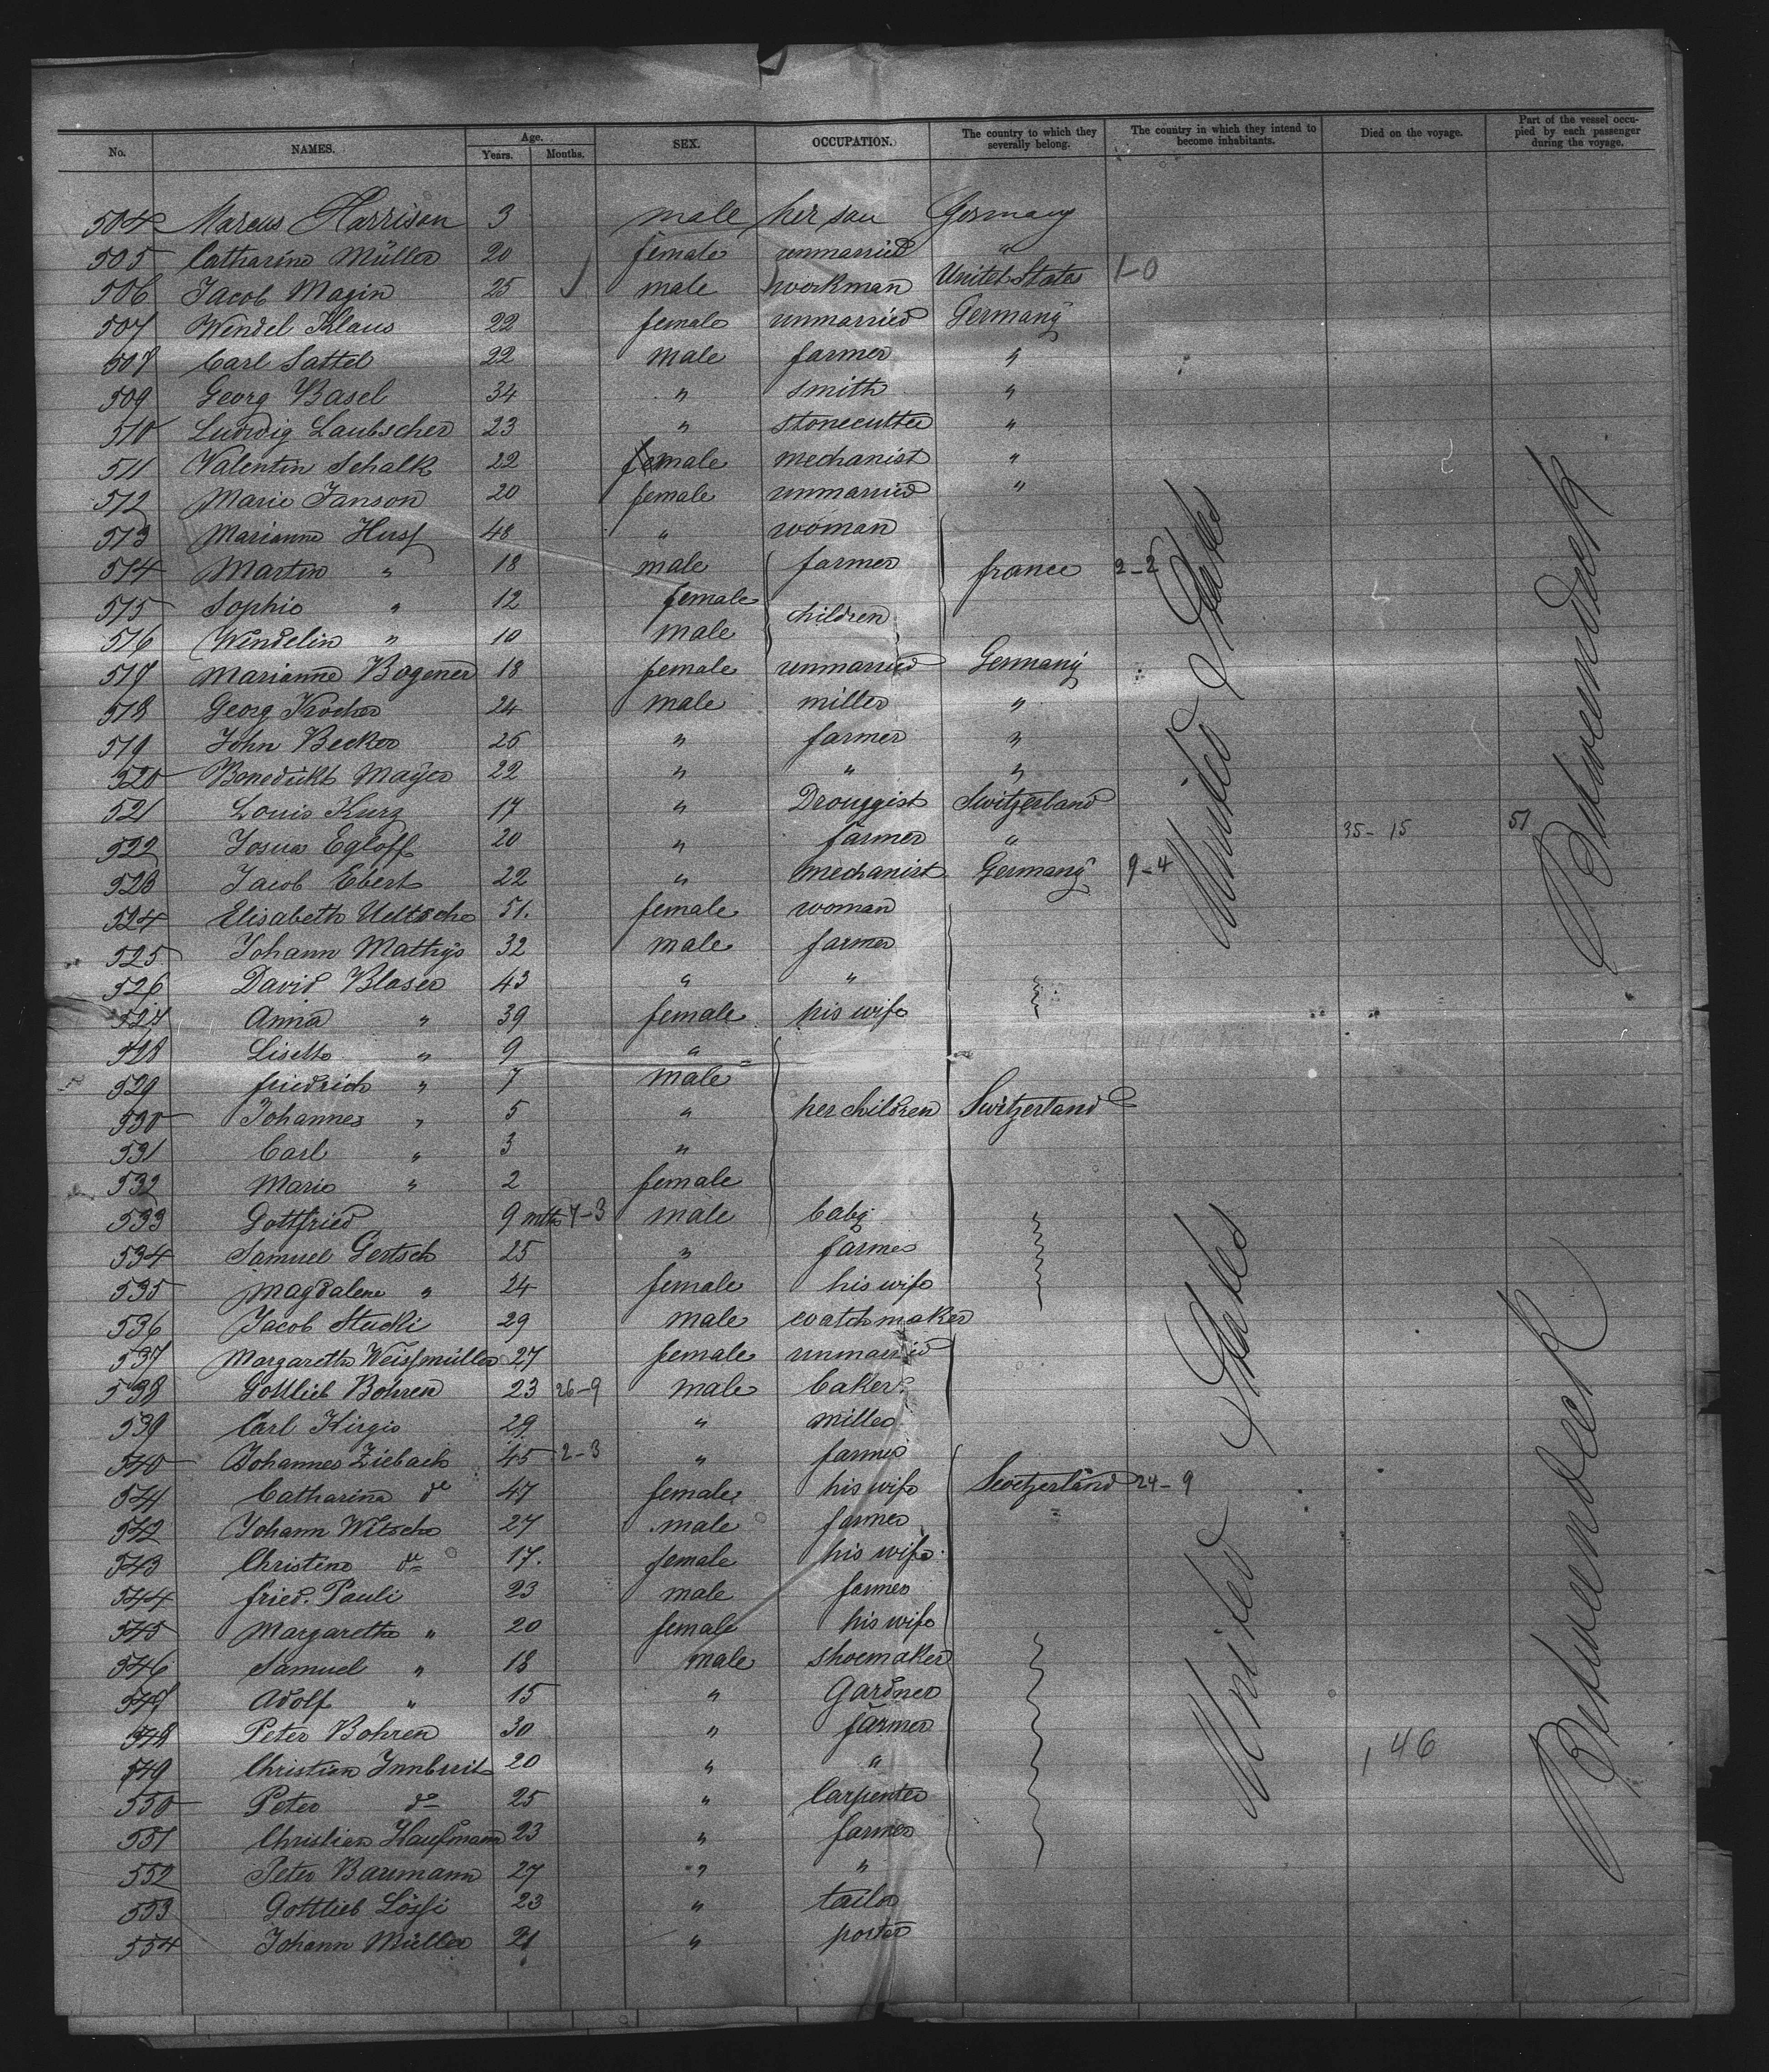 No. NAMES. Age. Years. Months. SEX. OCCUPATION. The country to which they severally belong. The country in which they intend to become inhabitants. Died on the voyage. Part of the vessel occupied by each passenger during the voyage.
504 Marcus Harrison 3 male her son Germany
505 Catharina Müller 20 female unmarried "
506 Jacob Magin 25 male workman United States 1-0
507 Wendel Klaus 22 female unmarried Germany
508 Carl Sattel 22 male farmer "
509 Georg Basel 34 " smith "
510 Ludwig Laubscher 23 " stonecutter "
511 Valentin Schalk 22 female mechanist "
512 Marie Janson 20 female unmarried "
513 Marianne 48 " woman
514 Martin " 18 male farmer france 2-2
515 Sophie " 12 female children
516 Wendelin " 10 male
517 Marianne Bogener 18 female unmarried Germany
518 Georg Kocher 24 male miller "
519 John Becker 26 " farmer "
520 Benedickt Mayer 22 " " "
521 Louis Kurz 17 " Drouggist Switzerland
522 Josua Egloff 20 " farmer " 35-15 51
523 Jacob Ebert 22 " mechanist Germany 9-4
524 Elisabeth Ueltsche 51. female woman
525 Johann Mathys 32 male farmer
526 David Blaser 43 " "
527 Anna " 39 female his wife
528 Lisette " 9 "
529 friedrich " 7 male
530 Johannes " 5 " her children Switzerland
531 Carl " 3 "
532 Marie " 2 female
533 Gottfried 9 mths 7-3 male baby
534 Samuel Gertsch 25 " farmer
535 Magdalene " 24 female his wife
536 Jacob Stucki 29 male watchmaker
537 Margaretha Weissmüller 27 female unmarried
538 Gottlieb Bohren 23 26-9 male baker
539 Carl Hirgis 29 " miller
540 Johannes Ziebach 45 2-3 " farmer
541 Catharina do 47 female his wife Switzerland 24-9
542 Johann Witsche 27 male farmer
543 Christine do 17. female his wife
544 fried. Pauli 23 male farmer
545 Margaretha " 20 female his wife
546 Samuel " 18 male shoemaker
547 Adolf " 15 " Gardner
548 Peter Bohren 30 " farmer
549 Christian Innbreit 20 " " 146
550 Peter do 25 " Carpenter
551 Christian Haussmann 23 " farmer
552 Peter Baumann 27 " "
553 Gottlieb Lössi 23 " tailor
554 Johann Müller 21 " porter
United States
United States
Betweendeck
Betweendeck